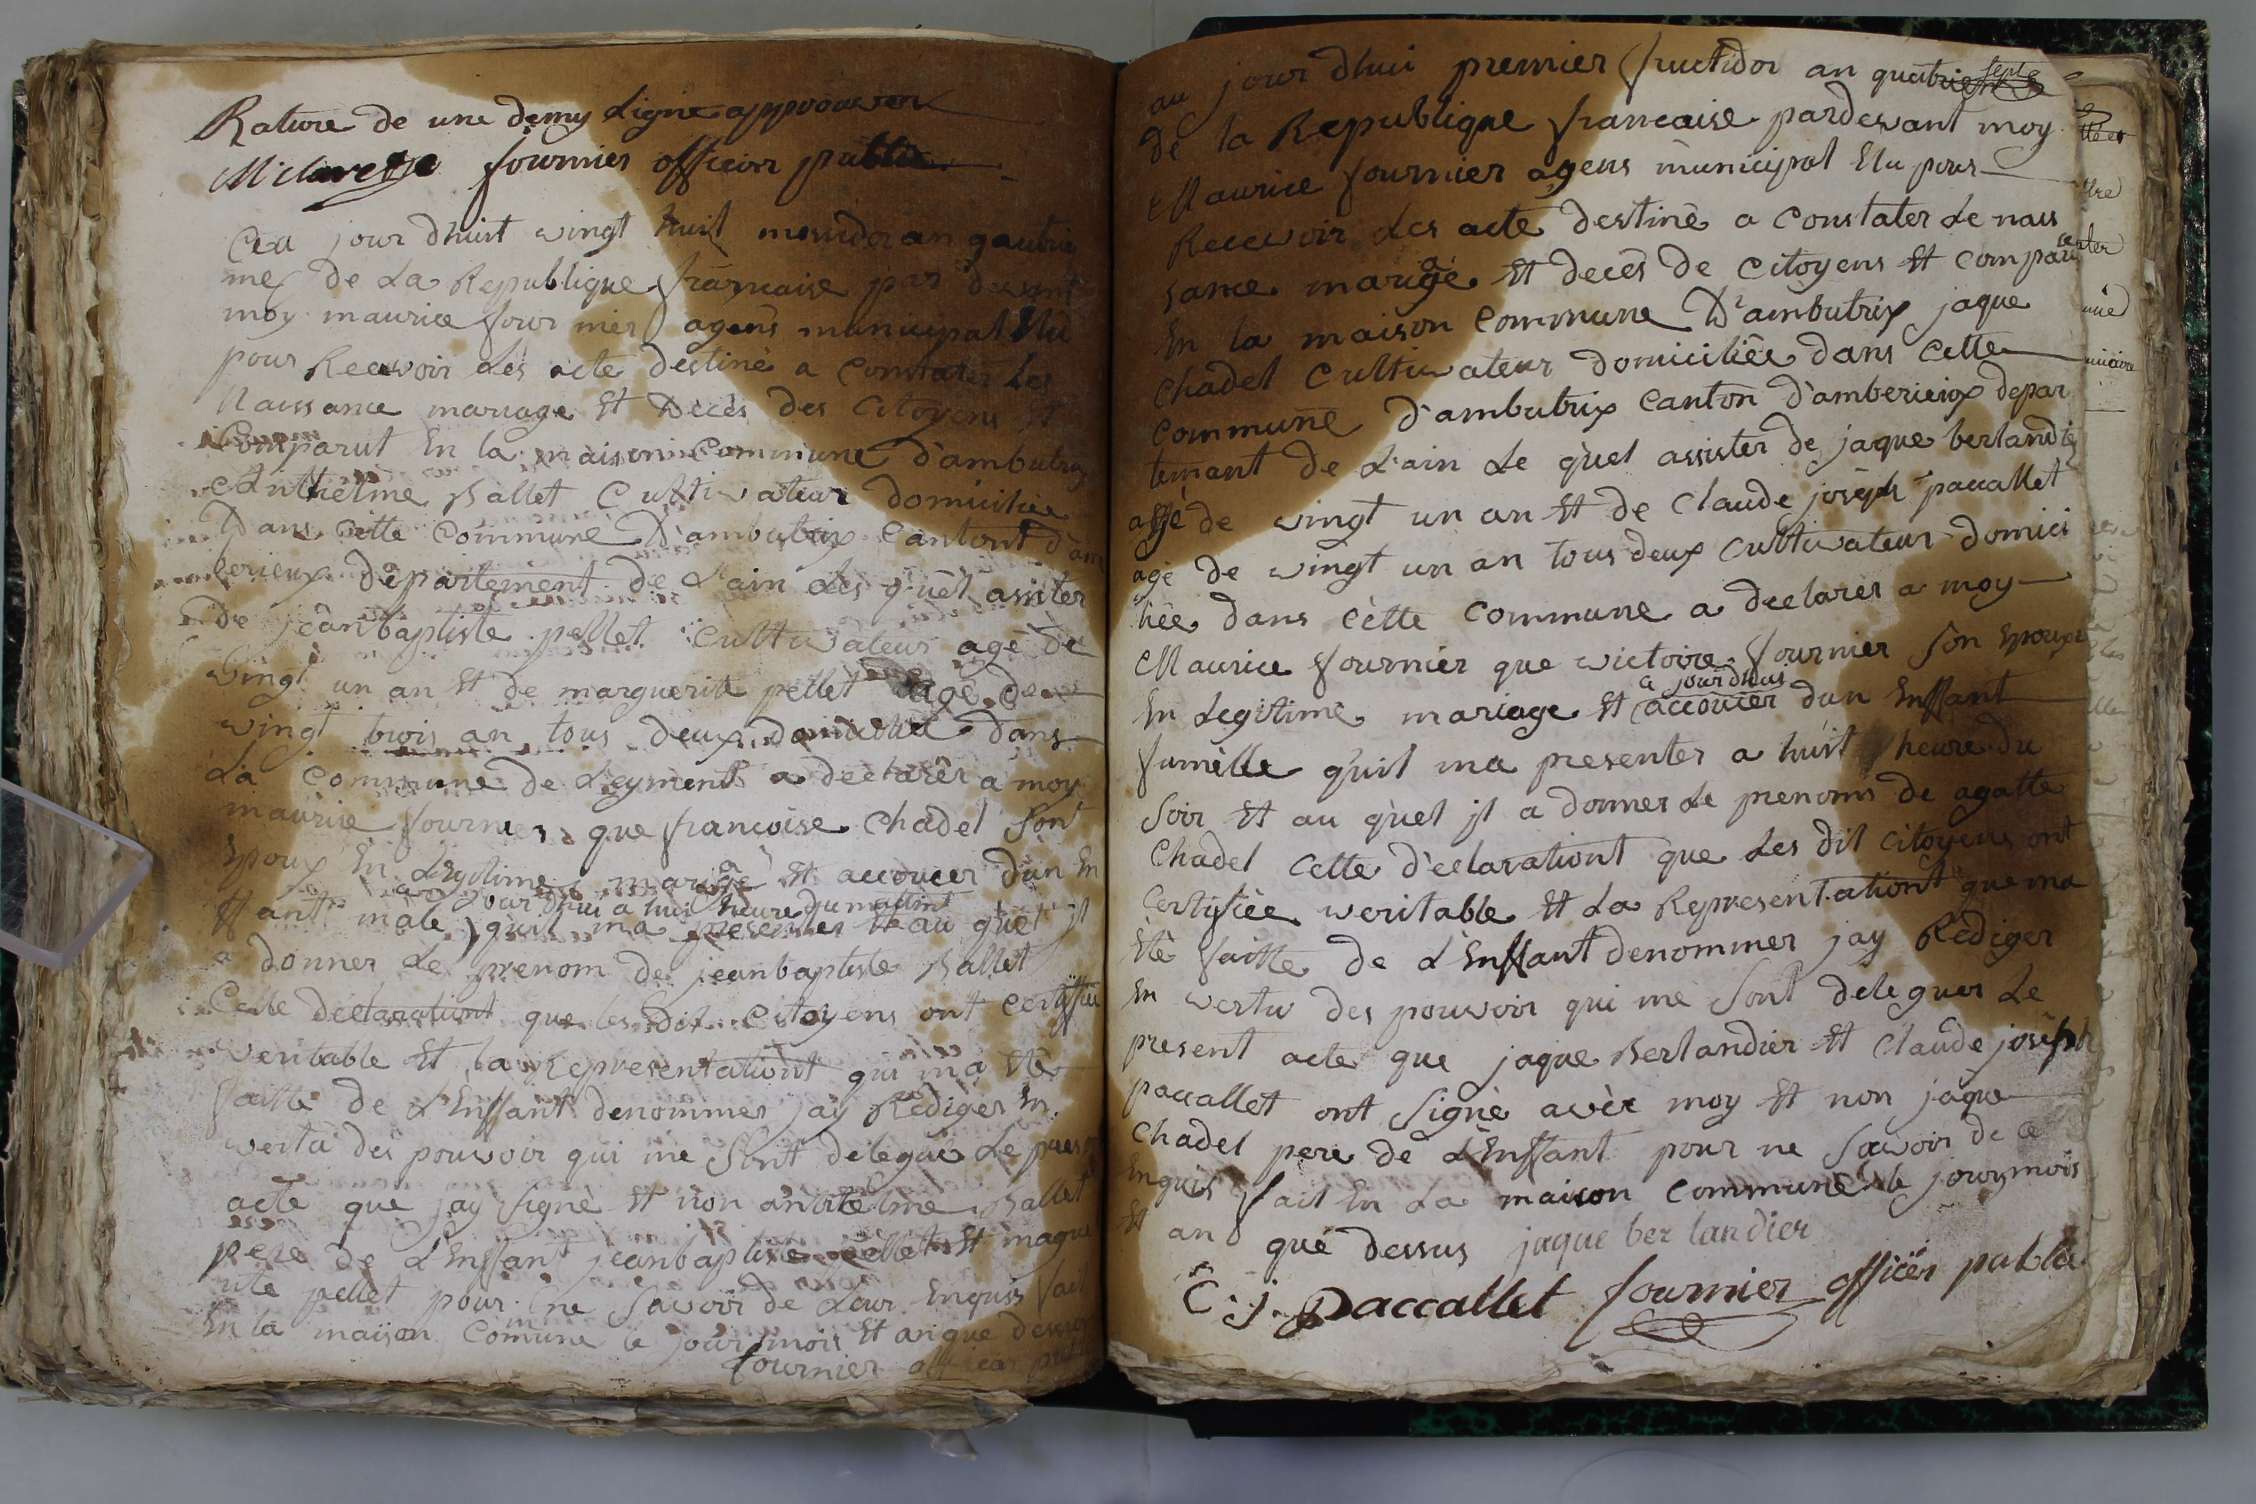 Rature de une demy Ligne approuver
fournier officier public
Cea jour dhuit vingt huit mesidor an quatrie
me de La Republique francaise par devant
moy maurice fournier agens municipal Elu
pour Recevoir Les acte destiné a Constater Les
Naissance mariage Et Décès des Citoyens Et
Comparut En la maison Commune d'ambutrix
Anthelme Ballet Cultivateur domiciliée
Dans Cette Commune D'ambutrix Cantont d'am
berieux département de L'ain Les quêl assiter
De jean baptiste pellet Cultivateur agé de
vingt un an Et de marguerite pellet agé de
vingt trois an tous deux domicilié dans
La Commune de Leyment a déclarér a moy
maurice fournier que francoise Chadel Son
Epoux En Legitime mariage Et accoucer dun En
a jour dhui a huit heure du matint
ffant mâle quil ma presenter Et au quel jl
a donner Le prenom de jeanbaptiste Ballet
Cette declarationt que les dit Citoyens ont Certiffié
veritable Et la Representationt qui ma Eté
faitte de L'Enffant denommer jay Rédiger En
vertu des pouvoir qui me Sont délégué Le presen
acte que jay Signé Et non antelme Ballet
pere de L'Enffant jeanbaptiste pellet Et mague
rite pellet pour ne Savoir de Leur Enquis fait
En la maison Comune le jour mois Et an que dessus
fournier officier public
au jour dhui premier fructidor an quatrie
sept
de la Republique francaise pardevant moy
Maurice fournier agens municipal Elu pour
Recevoir Les acte destiné a Constater Le nais
sance mariage Et decés de Citoyens Et Comparu
En la maison Commune D'ambutrix jaque
Chadel Cultivateur domiciliée dans Cette
Commune d'ambutrix Canton d'amberieux depar
temant de L'ain Le quel assister de jaque berlandie
agé de vingt un an Et de Claude joséph paccallet
agé de vingt un an tous deux Cultivateur domici
liée dans Cette Commune a declarer a moy
Maurice fournier que victoire fournier Son Epouxe
a jour dhui
En Legitime mariage Et accoucer dun Enffant
fumèlle quil ma presenter a huit heure du
Soir Et au quel jl a donner Le prenoms de agatte
Chadel Cette déclarationt que Les dit Citoyens ont
Certifiée veritable Et La Representationt que ma
Eté faitte de L'Enffant denommer jay Rediger
En vertu des pouvoir qui me Sont deleguer Le
present acte que jaque Berlandier Et Claude joséph
paccallet ont Signé avèc moy Et non jaque
Chadel pere de L'Enffant pour ne Savoir de ce
Enquis fait En La maison Commune le jour mois
Et an que dessus jaque berlandier
C. j. paccallet fournier officier public